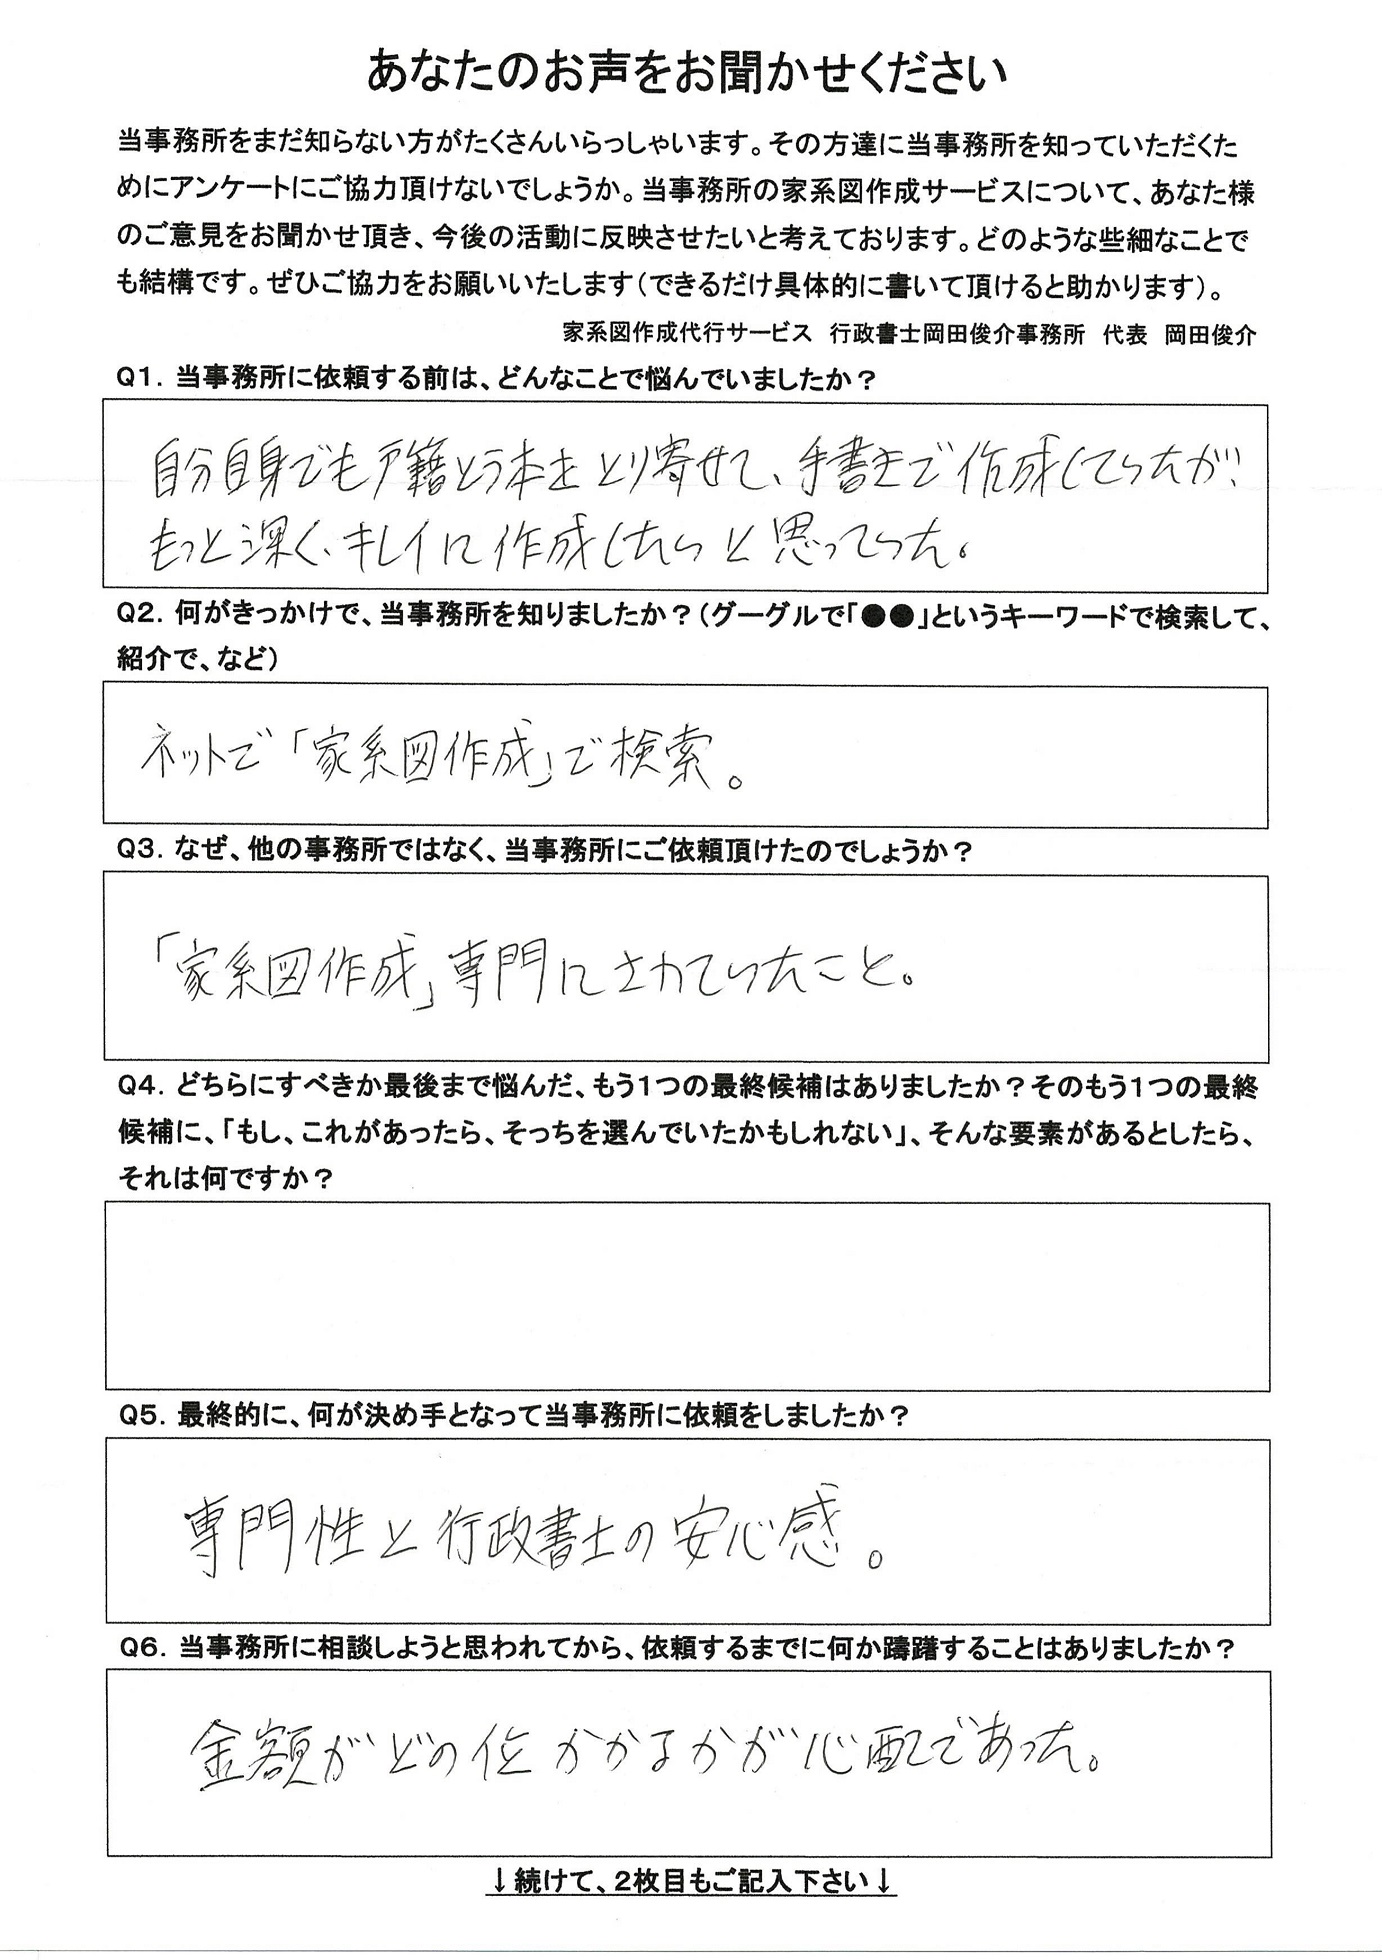 あなたのお声をお聞かせください
当事務所をまだ知らない方がたくさんいらっしゃいます。その方達に当事務所を知っていただくた
めにアンケートにご協力頂けないでしょうか。当事務所の家系図作成サービスについて、あなた様
のご意見をお聞かせ頂き、今後の活動に反映させたいと考えております。どのような些細なことで
も結構です。ぜひご協力をお願いいたします（できるだけ具体的に書いて頂けると助かります）。
家系図作成代行サービス　行政書士岡田俊介事務所　代表　岡田俊介
Q1．当事務所に依頼する前は、どんなことで悩んでいましたか？
自分自身でも戸籍とう本をとり寄せて、手書きで作成していたが、
もっと深く、キレイに作成したいと思っていた。
Q2．何がきっかけで、当事務所を知りましたか？（グーグルで「●●」というキーワードで検索して、
紹介で、など）
ネットで「家系図作成」で検索。
Q3．なぜ、他の事務所ではなく、当事務所にご依頼頂けたのでしょうか？
「家系図作成」専門にされていたこと。
Q4．どちらにすべきか最後まで悩んだ、もう1つの最終候補はありましたか？そのもう1つの最終
候補に、「もし、これがあったら、そっちを選んでいたかもしれない」、そんな要素があるとしたら、
それは何ですか？
Q5．最終的に、何が決め手となって当事務所に依頼をしましたか？
専門性と行政書士の安心感。
Q6．当事務所に相談しようと思われてから、依頼するまでに何か躊躇することはありましたか？
金額がどの位かかるかが心配であった。
↓続けて、2枚目もご記入下さい↓